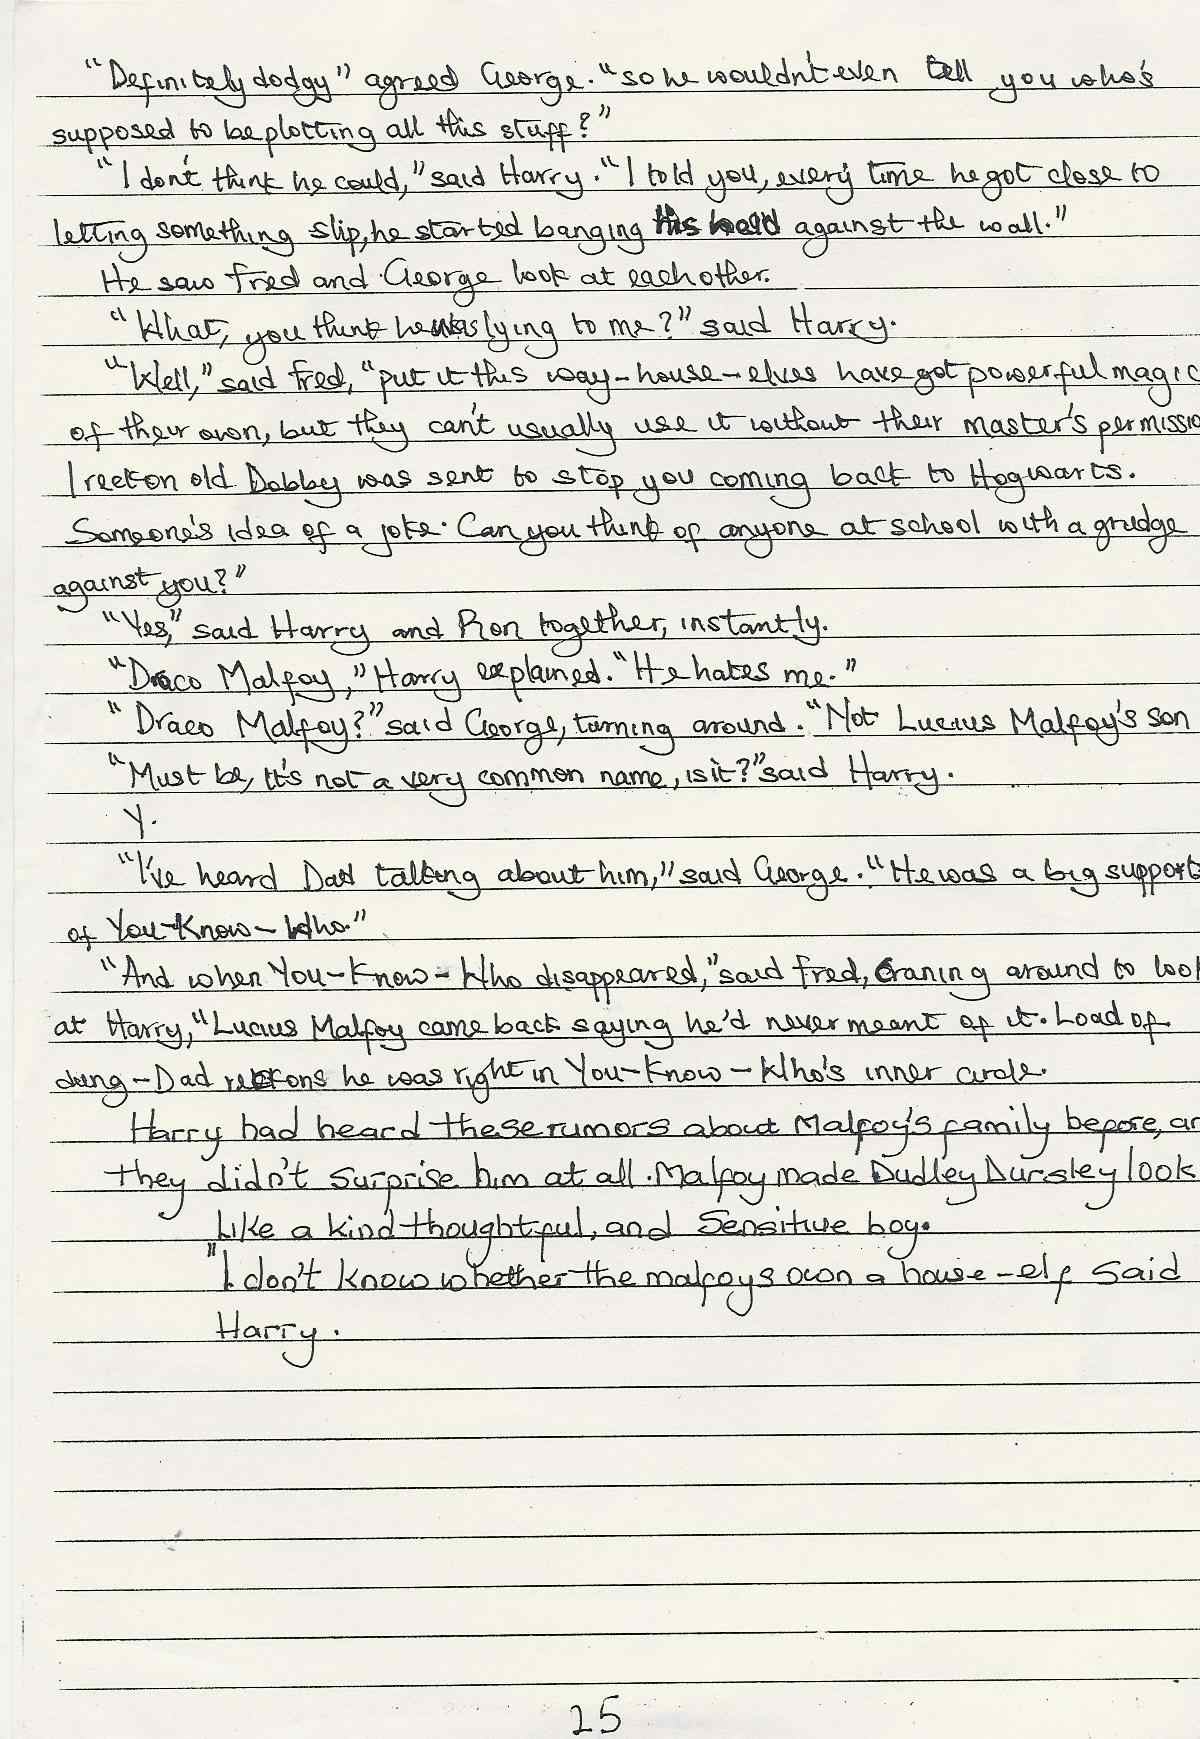 "Definitely dodgy" agreed George. "so he wouldn't even tell you who's
supposed to be plotting all this stuff?"
"I don't think he could," said Harry. "I told you, every time he got close to
letting something slip, he started banging his head against the wall."
He saw Fred and George look at each other.
"What, you think he was lying to me?" said Harry.
"Well," said Fred, "put it this way - house - elves have got powerful magic
of their own, but they can't usually use it without their master's permissio
I reckon old Dobby was sent to stop you coming back to Hogwarts.
Someone's idea of a joke. Can you think of anyone at school with a grudge
against you?"
"Yes," said Harry and Ron together, instantly.
"Draco Malfoy," Harry explained. "He hates me."
"Draco Malfoy?" said George, turning around. "Not Lucius Malfoy's son
"Must be, It's not a very common name, is it?" said Harry.
Y.
"I've heard Dad talking about him," said George. "He was a big supporte
of You-Know-Who."
"And when You-Know-Who disappeared," said Fred, Craning around to look
at Harry, "Lucius Malfoy came back saying he'd never meant of it. Load of
dung - Dad reckons he was right in You-Know-Who's inner circle.
Harry had heard these rumors about Malfoy's family before, an
they didn't surprise him at all. Malfoy made Dudley Dursley look
Like a kind thoughtful, and Sensitive boy.
"I don't know whether the malfoys own a house-elf Said
Harry.
25